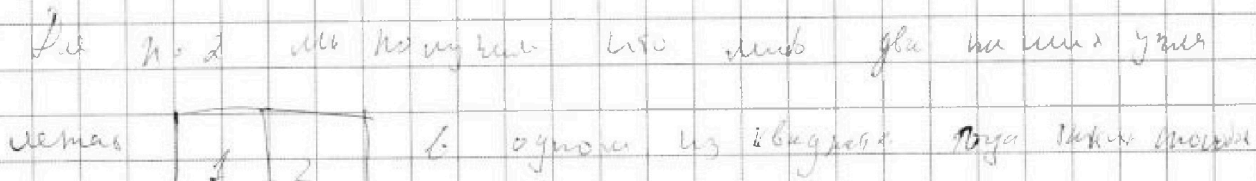 Для n=2 мы получим что либо два наших узла
лежат 1 2 в одном из квадрате тогда таких